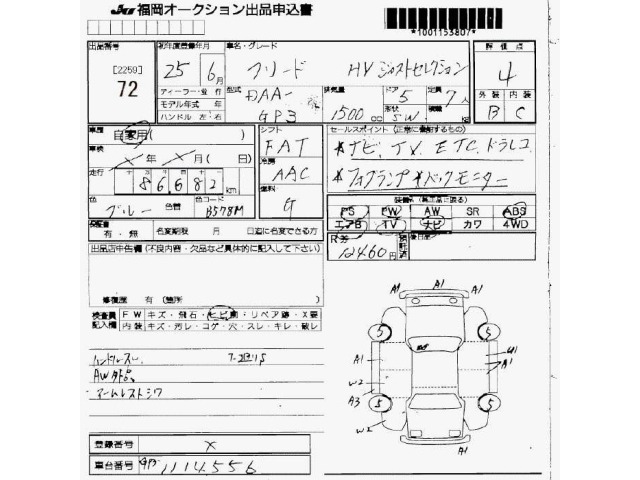 JU 福岡オークション出品申込書
*1001153807*
出品番号
[2259]
72
初年度登録年月
25年6月
ディーラー・並行
モデル年式 年
ハンドル 左・右
車名・グレード
フリード HV ジャストセレクション
型式
DAA-
GP3
排気量
1500 cc
ドア
5
形状
S W
定員
7人
積載
評価点
4
外装 内装
B C
車歴
自家用
車検
X年X月(日)
走行
86682 km
色
ブルー
色替
色コード
B578M
シフト
FAT
冷房
AAC
燃料
G
セールスポイント(正常に作動するもの)
*ナビ、TV、ETC、ドラレコ
*フォグランプ *バックモニター
装備品(純正品に限る)
PS PW AW SR ABS
エアB TV ナビ カワ 4WD
保証書
有・無
名変期限 月 日迄に名変できる方
R券
12460円
預託済
後日品
出品店申告欄(不良内容・欠品など具体的に記入して下さい)
修復歴 有(箇所 )
検査員記入欄
FW キズ・飛石・ヒビ割・リペア跡・X要
内装 キズ・汚レ・コゲ・穴・スレ・キレ・破レ
ハンドルスレ
AW外品
アームレストシワ
登録番号
X
車台番号
GP3 1114556
A1 A1
5 5
A1 U1
A1
W2
A3
5 5
W2
A1